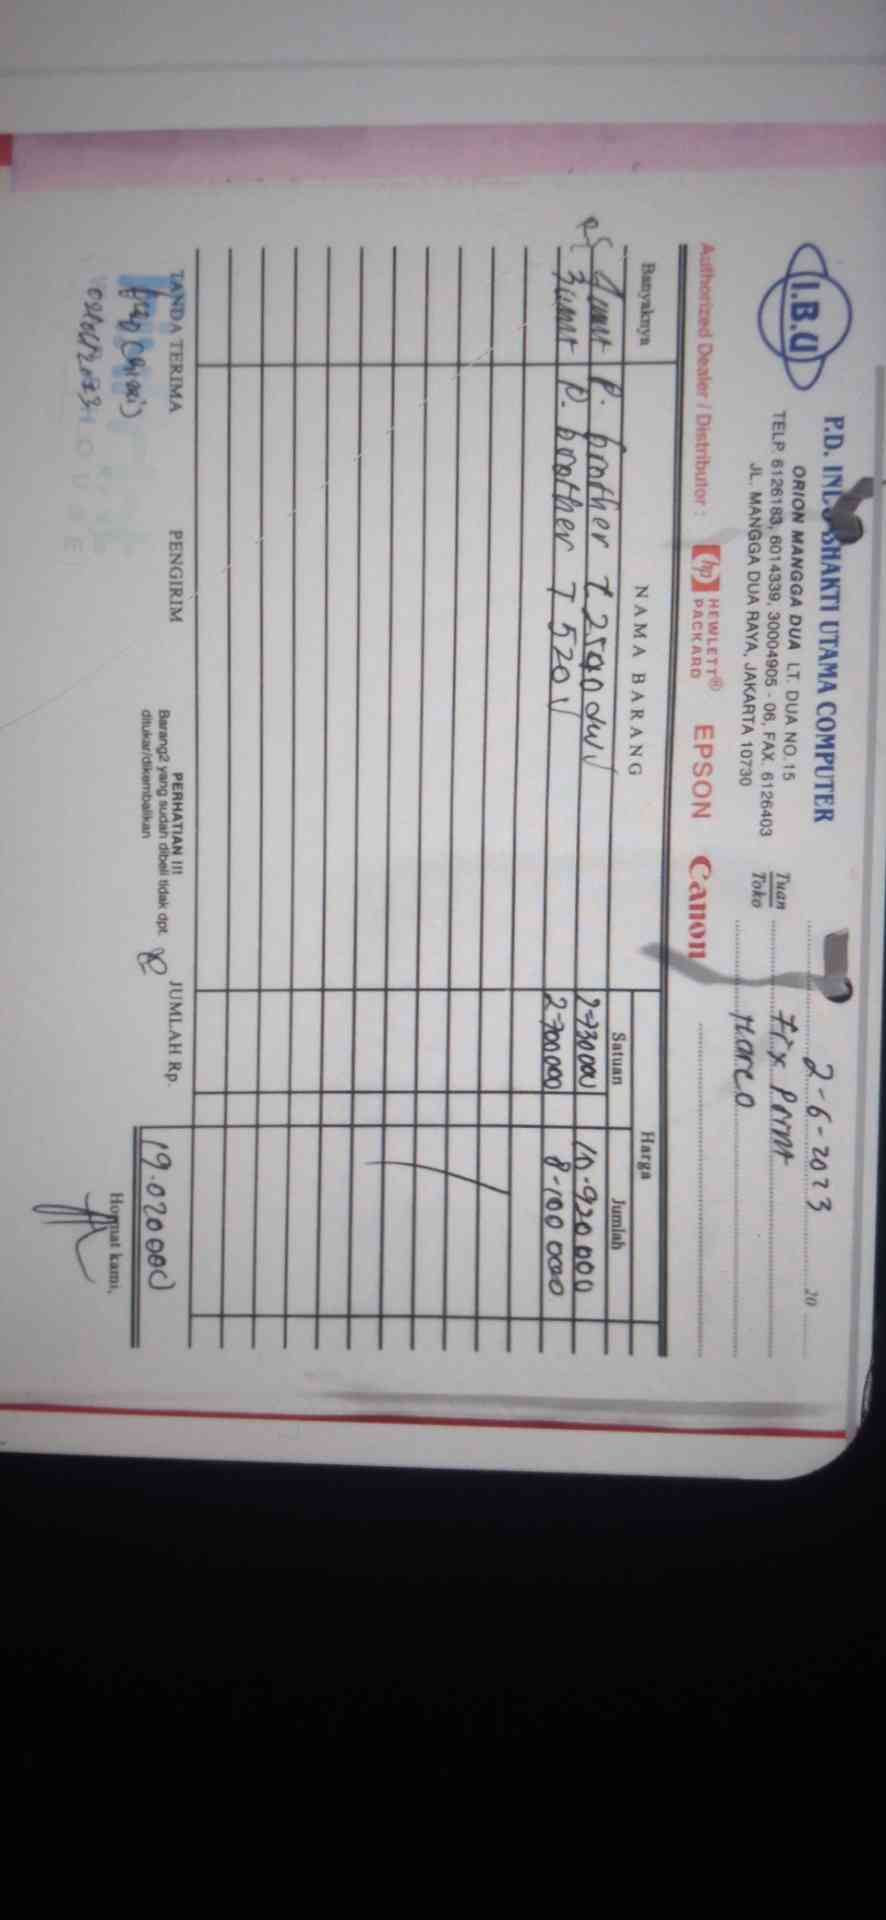 I.B.U
P.D. INDO BHAKTI UTAMA COMPUTER
ORION MANGGA DUA LT. DUA NO.15
TELP. 6126183, 6014339, 30004905 - 06, FAX. 6126403
JL. MANGGA DUA RAYA, JAKARTA 10730
2-6-2023 20
Tuan
Toko
Fix Print
Marco
Authorized Dealer / Distributor : hp HEWLETT® PACKARD EPSON Canon
Banyaknya NAMA BARANG Harga
Satuan Jumlah
4 unit P. brother L2540dw 2730000 10.920 000
3 unit P. brother T 520 2700000 8.100 000
TANDA TERIMA PENGIRIM JUMLAH Rp. 19.020000
PERHATIAN !!!
Barang2 yang sudah dibeli tidak dpt.
ditukar/dikembalikan
Hormat kami,
02/06/2023